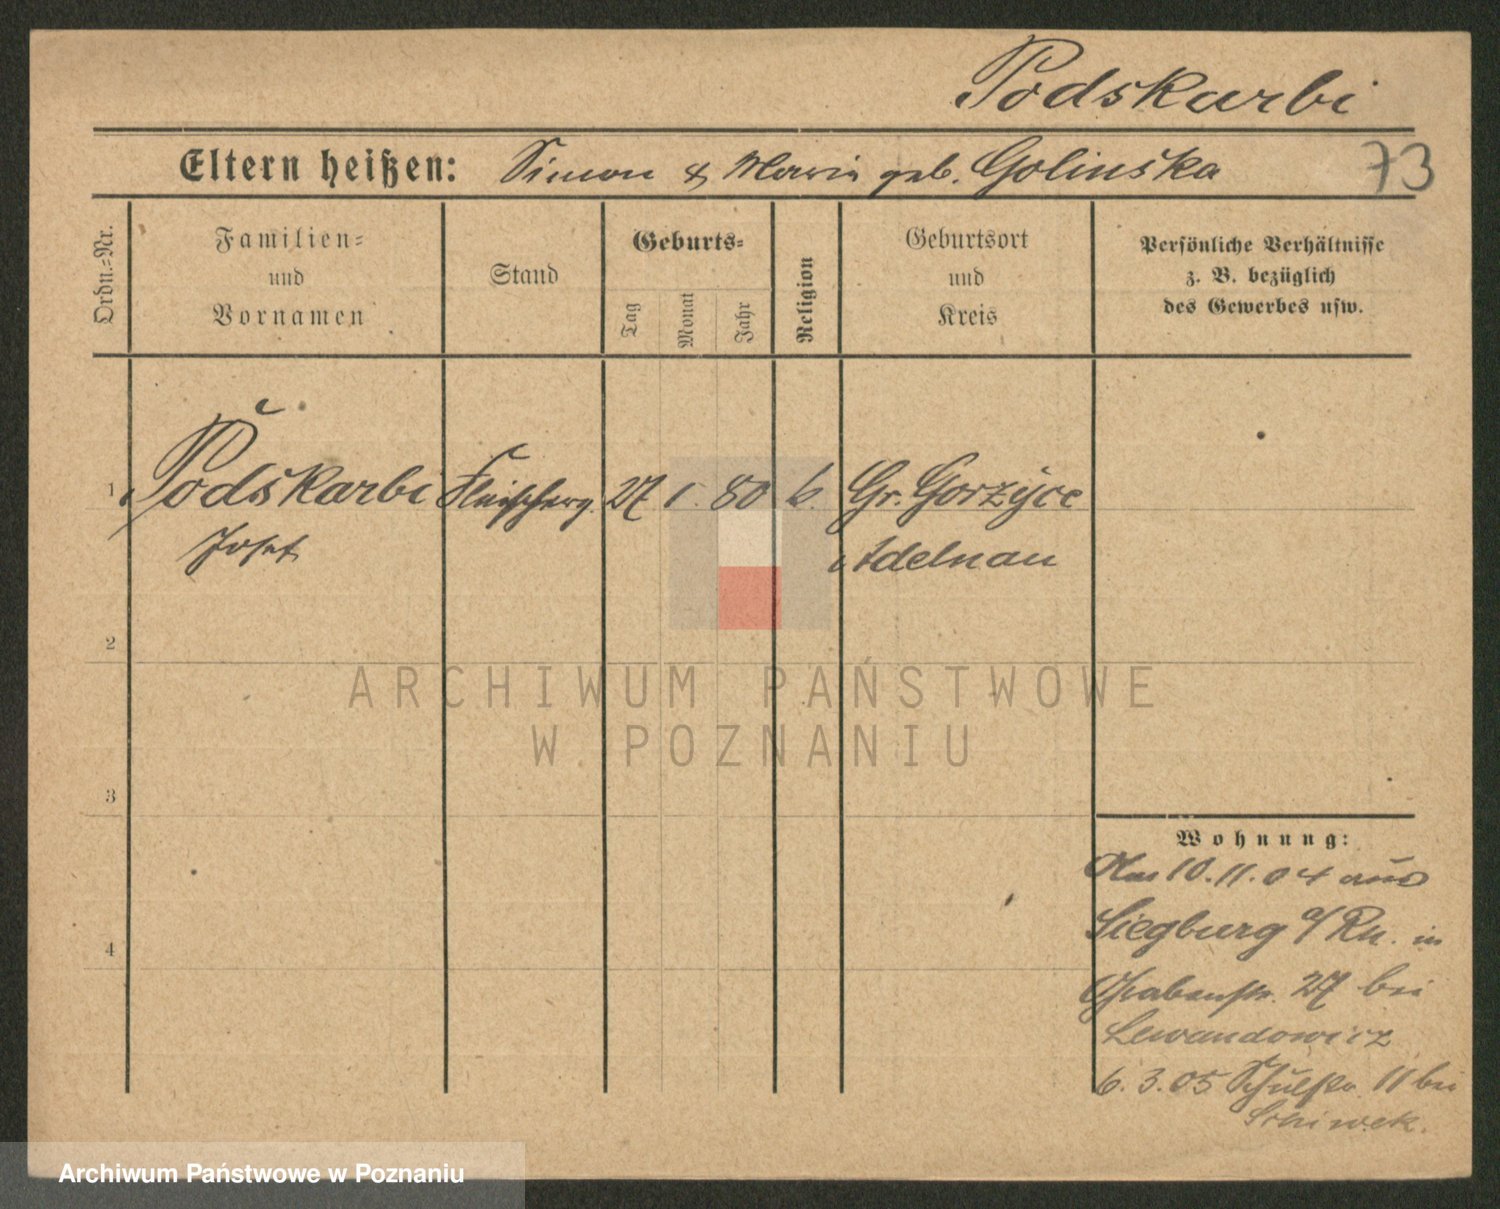 Podskarbi
Eltern heißen: Simon & Maria geb. Golinska
73
Ordn.=Nr.
Familien=
und
Vornamen
Stand
Geburts=
Tag
Monat
Jahr
Religion
Geburtsort
und
Kreis
Persönliche Verhältnisse
z. B. bezüglich
des Gewerbes usw.
1 Podskarbi Fleischerg. 27 1. 80 k. Gr. Gorzyce
Josef Adelnau
2
3
4
Wohnung:
Am 10.11.04 aus
Siegburg a/Rh. in
Grabenstr. 27 bei
Lewandowicz
6.3.05 Schulstr. 11 bei
ARCHIWUM PAŃSTWOWE
W POZNANIU
Archiwum Państwowe w Poznaniu